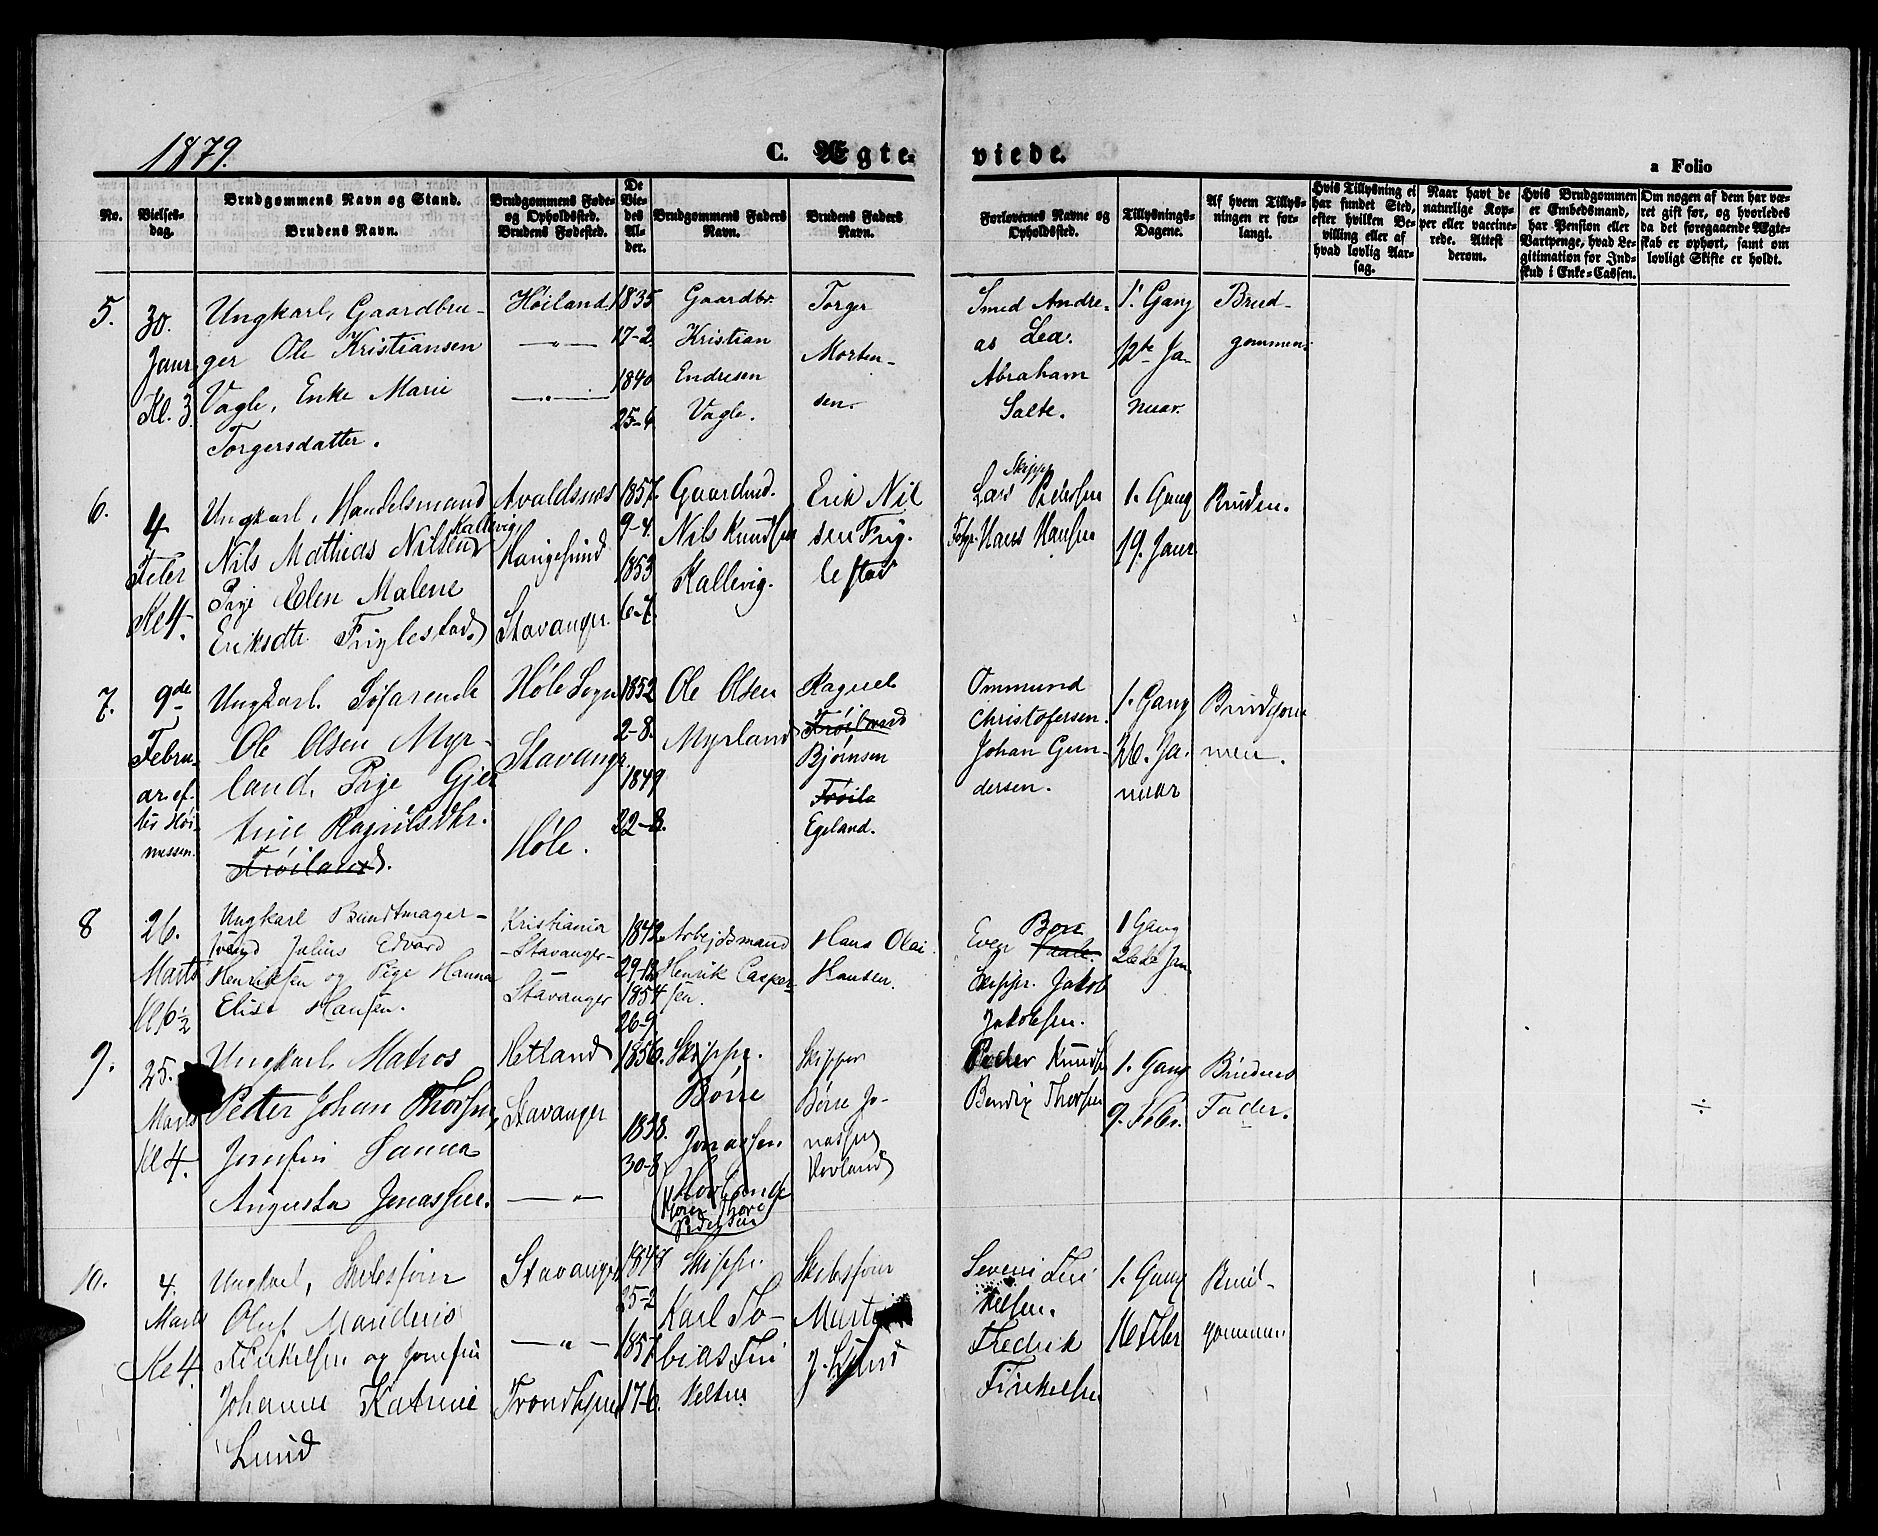 1879.
C. Ægteviede.
a Folio
No.
Vielsesdag.
Brudgommens Navn og Stand.
Brudens Navn.
Brudgommens Føde- og Opholdssted.
Brudens Fødested.
De Viedes Alder.
Brudgommens Faders Navn.
Brudens Faders Navn.
Forlovernes Navne og Opholdssted.
Tillysnings-Dagene.
Af hvem Tillysningen er forlangt.
Hvis Tillysning ei har fundet Sted, efter hvilken Bevilling eller af hvad lovlig Aarsag.
Naar havt de naturlige Kopper eller vaccinerede. Attest derom.
Hvis Brudgommen er Embedsmand, har Pension eller Vartpenge, hvad Legitimation for Indskud i Enke-Cassen.
Om nogen af dem har været gift før, og hvorledes da det foregaaende Ægteskab er ophørt, samt om lovligt Skifte er holdt.
5.
30. Janr Kl. 3
Ungkarl, Gaardbru-
ger Ole Kristiansen
Vagle, Enke Marie
Torgersdatter.
Høiland
—„—
—„—
1835
17-2
1840
25-6
Gaardbr.
Kristian
Endresen
Vagle.
Torger
Morten-
sen.
Smed Andre-
as Lea.
Abraham
Salte.
1. Gang
12te Ja-
nuar.
Brud-
gommen.
6.
4
Febr
Kl 4.
Ungkarl, Handelsmand
Nils Mathias Nilsen Kallevig
Pige Elen Malene
Eriksdtr. Friglestad
Avaldsnæs
Haugesund
Stavanger.
1857.
9-4.
1853
6-7.
Gaardmd.
Nils Knudsen
Kallevig.
Erik Nil
sen Frig.
lestad
Skipp
Lars Pedersen
Hans Hansen
1. Gang
19. Janr
Bruden.
7.
9de
Febru-
ar ef-
ter Høi-
messen.
Ungkarl. Søfarende
Ole Olsen Myr-
land, Pige Gjer
trine Ragnilsdtr.
Frøiland.
Høle Sogn
Stavangr.
Høle.
1852
2-8.
1849
22-8.
Ole Olsen
Myrland
Ragnel
Frøiland
Bjørnsen
Frøila
Egeland.
Ommund
Christofersen.
Johan Gun-
dersen.
1. Gang
26. Ja-
nuar
Brudgom
men.
8
26.
Marts
Kl 6½
Ungkarl Bundtmager-
svend Julius Edvard
Henriksen og Pige Hanna
Elise Hansen.
Kristiania
-Stavanger-
Stavanger
1842
29-12
1854
26-9
Arbejdsmand
Henrik Casper-
sen.
Hans Olai
Hansen.
Even Bore
Skippr. Jakob
Jakobsen.
1 Gang
26de Jan
9.
25.
Marts
Kl 4.
Ungkarl, Matros
Petter Johan Thorsen,
Jomfru Sanna
Augusta Jonassen.
Hetland
Stavanger
—„—
1856.
1858.
30-8
Skippr.
Børre
Jonassen
Thore
Pedersen
Skipper
Børre Jo-
nassen
Hovland
Peder Knudsen
Bendix Thorsen
1. Gang
9. Febr.
Brudens
Fader.
÷
10.
4.
Marts
Kl 4.
Ungkarl, Skibsfører
Oluf Mandius
Finkelsen og Jomfru
Johanne Katrine
Lund
Stavanger
—„—
Trondhjem
1848
25-2
1857
17-6
Skippr.
Karl To-
bias Fin
kelsen
Skibsfører
Martin
J. Lund
Severin Fin
kelsen.
Fredrik
Finkelsen
1. Gang
16 Febr
Brud-
gommen